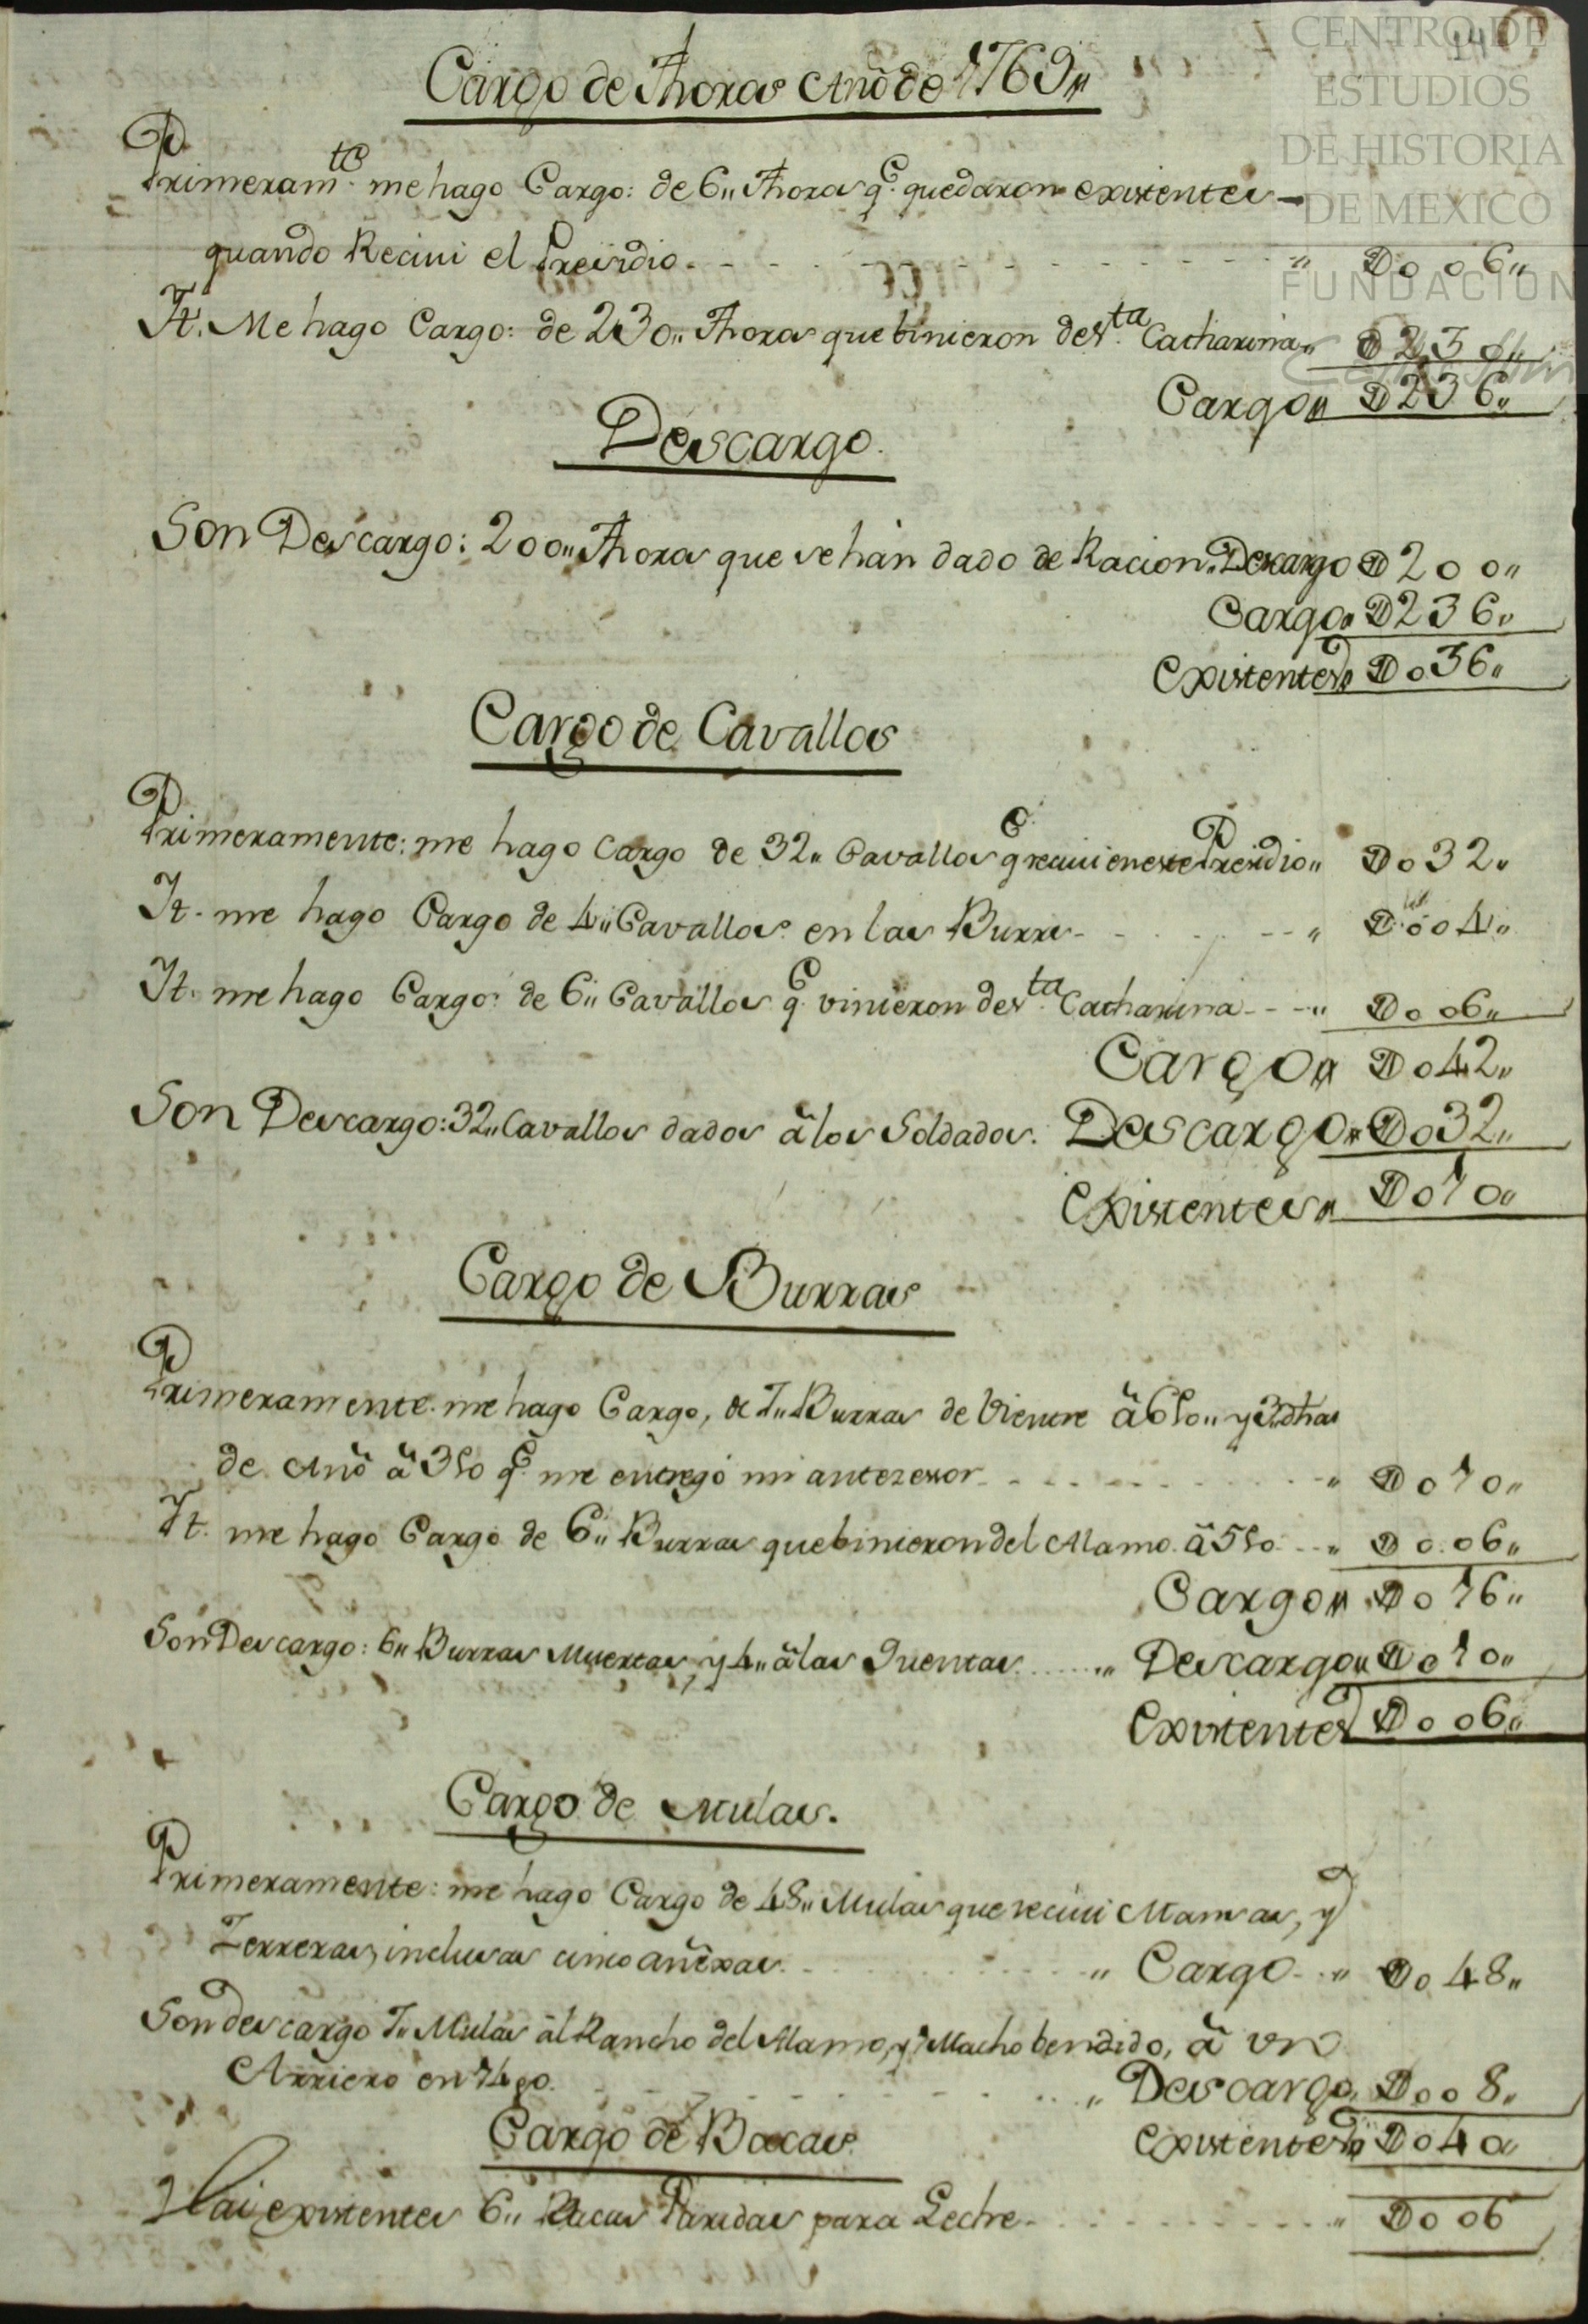 CENTRO DE
ESTUDIOS
DE HISTORIA
DE MEXICO
FUNDACION
Cargo de Thoros Año de 1769,,
Primeram.te me hago Cargo: de 6,, Thoros q.e quedaron existentes
quando Recivi el Presidio - - - ,, D006,,
It. Me hago Cargo: de 230,, Thoros que binieron de S.ta Catharina,, D230,,
Cargo,, D236,,
Descargo.
Son Descargo: 200,, Thoros que se hàn dado de Racion,, Descargo D200,,
Cargo,, D236,,
Existentes,, D036,,
Cargo de Cavallos
Primeramente: me hago Cargo de 32,, Cavallos q.e recivi en este Presidio,, D032,,
It. me hago Cargo de 4,, Cavallos en las Burrs - - - ,, D004,,
It. me hago Cargo: de 6,, Cavallos q.e vinieron de S.ta Catharina - - - ,, D006,,
Cargo,, D042,,
Son Descargo: 32,, Cavallos dados â los Soldados. Descargo,, D032,,
Existentes,, D010,,
Cargo de Burras
Primeramente. me hago Cargo, de 7,, Burras de Vientre â 6 ps,, y 3,, dhas
de Año â 3 ps q.e me entregó mi antezesor - - - ,, D010,,
It. me hago Cargo de 6,, Burras que binieron del Alamo. â 5 ps - - ,, D006,,
Cargo,, D016,,
Son Descargo: 6,, Burras Muertas, y 4,, â las Quentas ,, Descargo,, D010,,
Existentes D006,,
Cargo de Mulas.
Primeramente: me hago Cargo de 48,, Mulas que recivi Mansas, y
Zerreras, inclusas cinco añexas. - - - ,, Cargo - - ,, D048,,
Son descargo 7,, Mulas âl Rancho del Alamo, y 1 Macho bendido, â vn
Arriero en 14 ps. - - - ,, Descargo,, D008,,
Existentes,, D040,,
Cargo de Bacas
Hai existentes 6,, Bacas Paridas para Leche - - - ,, D006